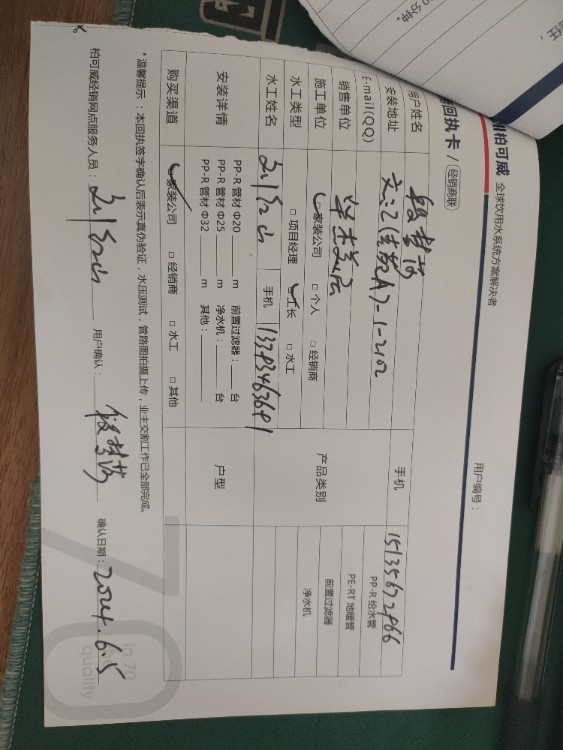 柏可威 全球饮用水系统方案解决者
回执卡 / 经销商联
用户编号：
用户姓名 段梦茹 手机 15135672966
安装地址 -1-2102
E-mail(QQ)
销售单位
施工单位 家装公司 □ 个人 □ 经销商
水工类型 □ 项目经理 工长 □ 水工
产品类别 PP-R 给水管 PE-RT 地暖管 前置过滤器 净水机
水工姓名 手机
安装详情 PP-R 管材 Φ20 m 前置过滤器： 台
PP-R 管材 Φ25 m 净水机： 台
PP-R 管材 Φ32 m 其他：
户型
购买渠道 家装公司 □ 经销商 □ 水工 □ 其他
* 温馨提示：本回执签字确认后表示真伪验证，水压测试，管路图拍摄上传，业主交割工作已全部完成。
柏可威经销网点服务人员： 用户确认： 段梦茹 确认日期： 2024.6.5
70
in 70
quality